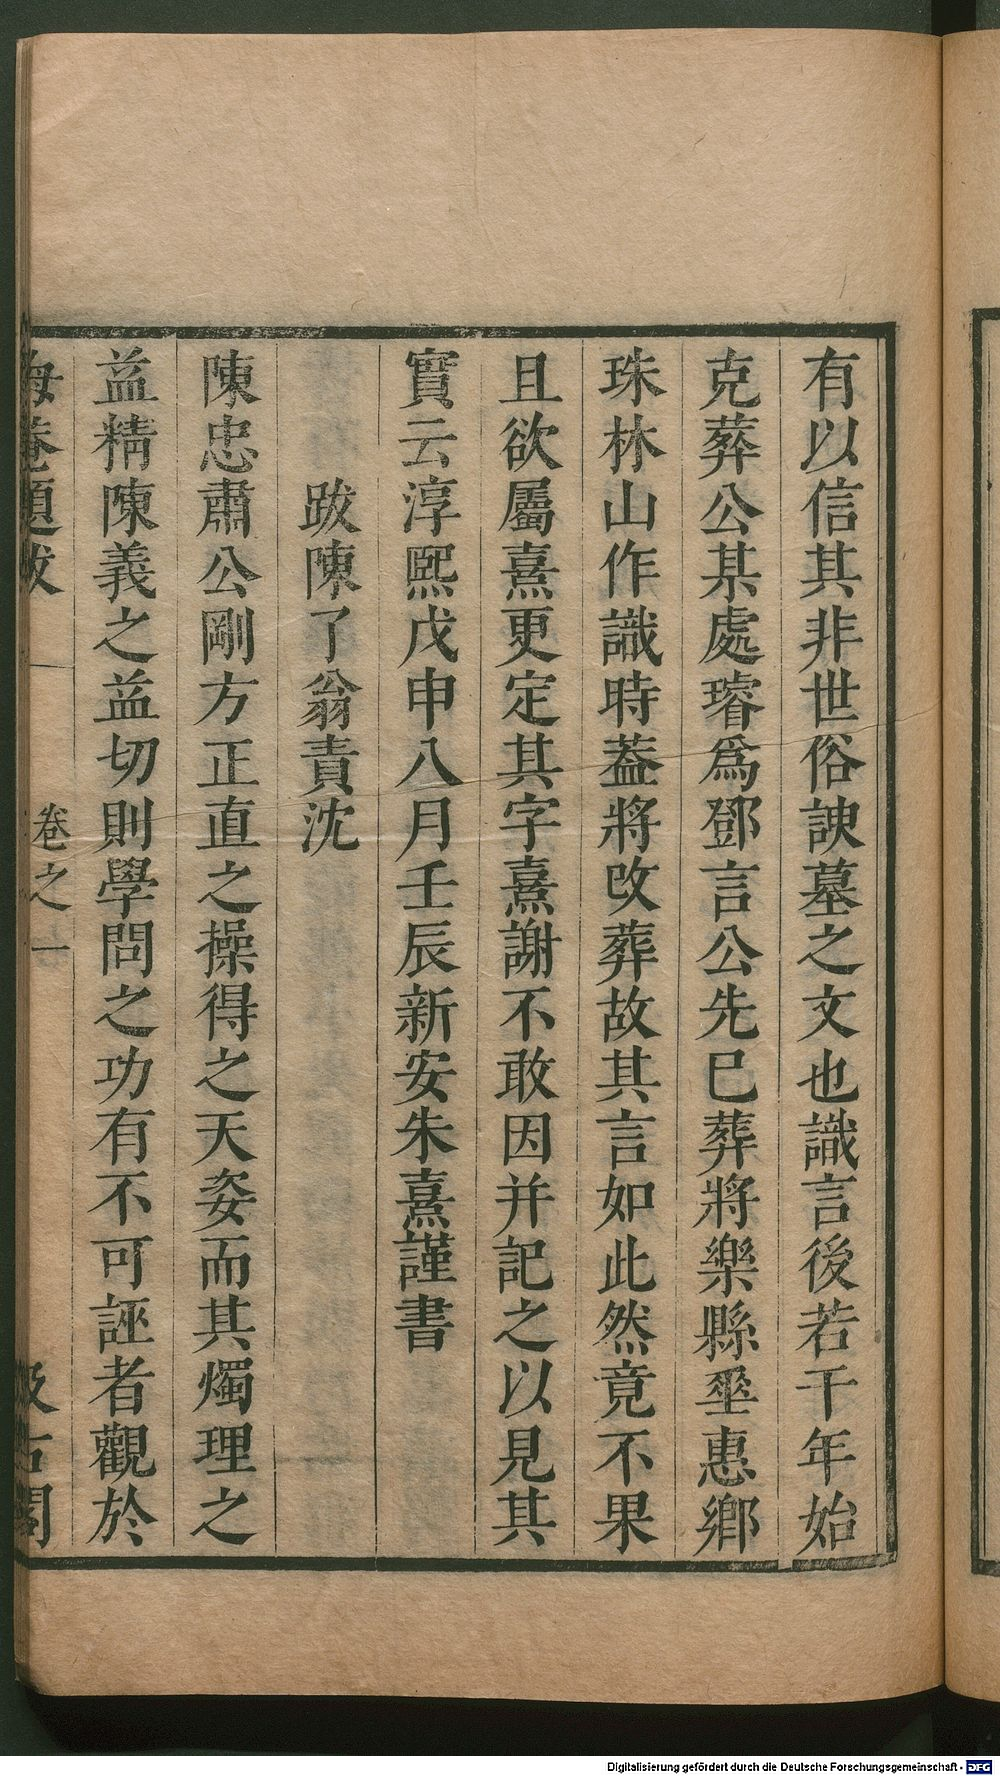 有以信其非世俗諛墓之文也識言後若干年始
克葬公某處璿爲鄧言公先巳葬將樂縣埀惠鄉
珠林山作識時葢將改葬故其言如此然竟不果
且欲屬熹更定其字熹謝不敢因并記之以見其
實云淳熙戊申八月壬辰新安朱熹謹書
跋陳了翁責沈
陳忠肅公剛方正直之操得之天姿而其燭理之
益精陳義之益切則學問之功有不可誣者觀於
海菴題跋 卷之一 汲古閣
Digitalisierung gefördert durch die Deutsche Forschungsgemeinschaft - DFG